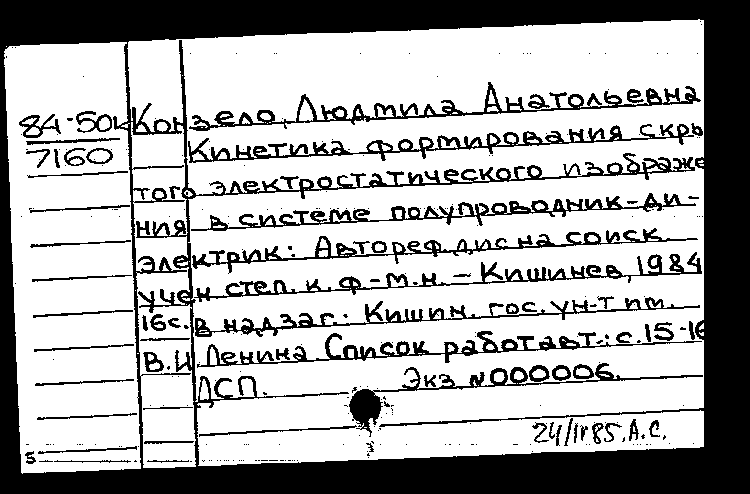 84-50к Конзело, Людмила Анатольевна
7160 Кинетика формирования скры
того электростатического изображе
ния в системе полупроводник-ди-
электрик: Автореф дис на соиск
учен степ. к. ф.-м.н. - Кишинев, 1984
16с. в надзаг.: Кишин. гос. ун-т им.
В.И Ленина Список работ авт.: с.15-16
ДСП. Экз №000006.
24/IV85. А.С.
5